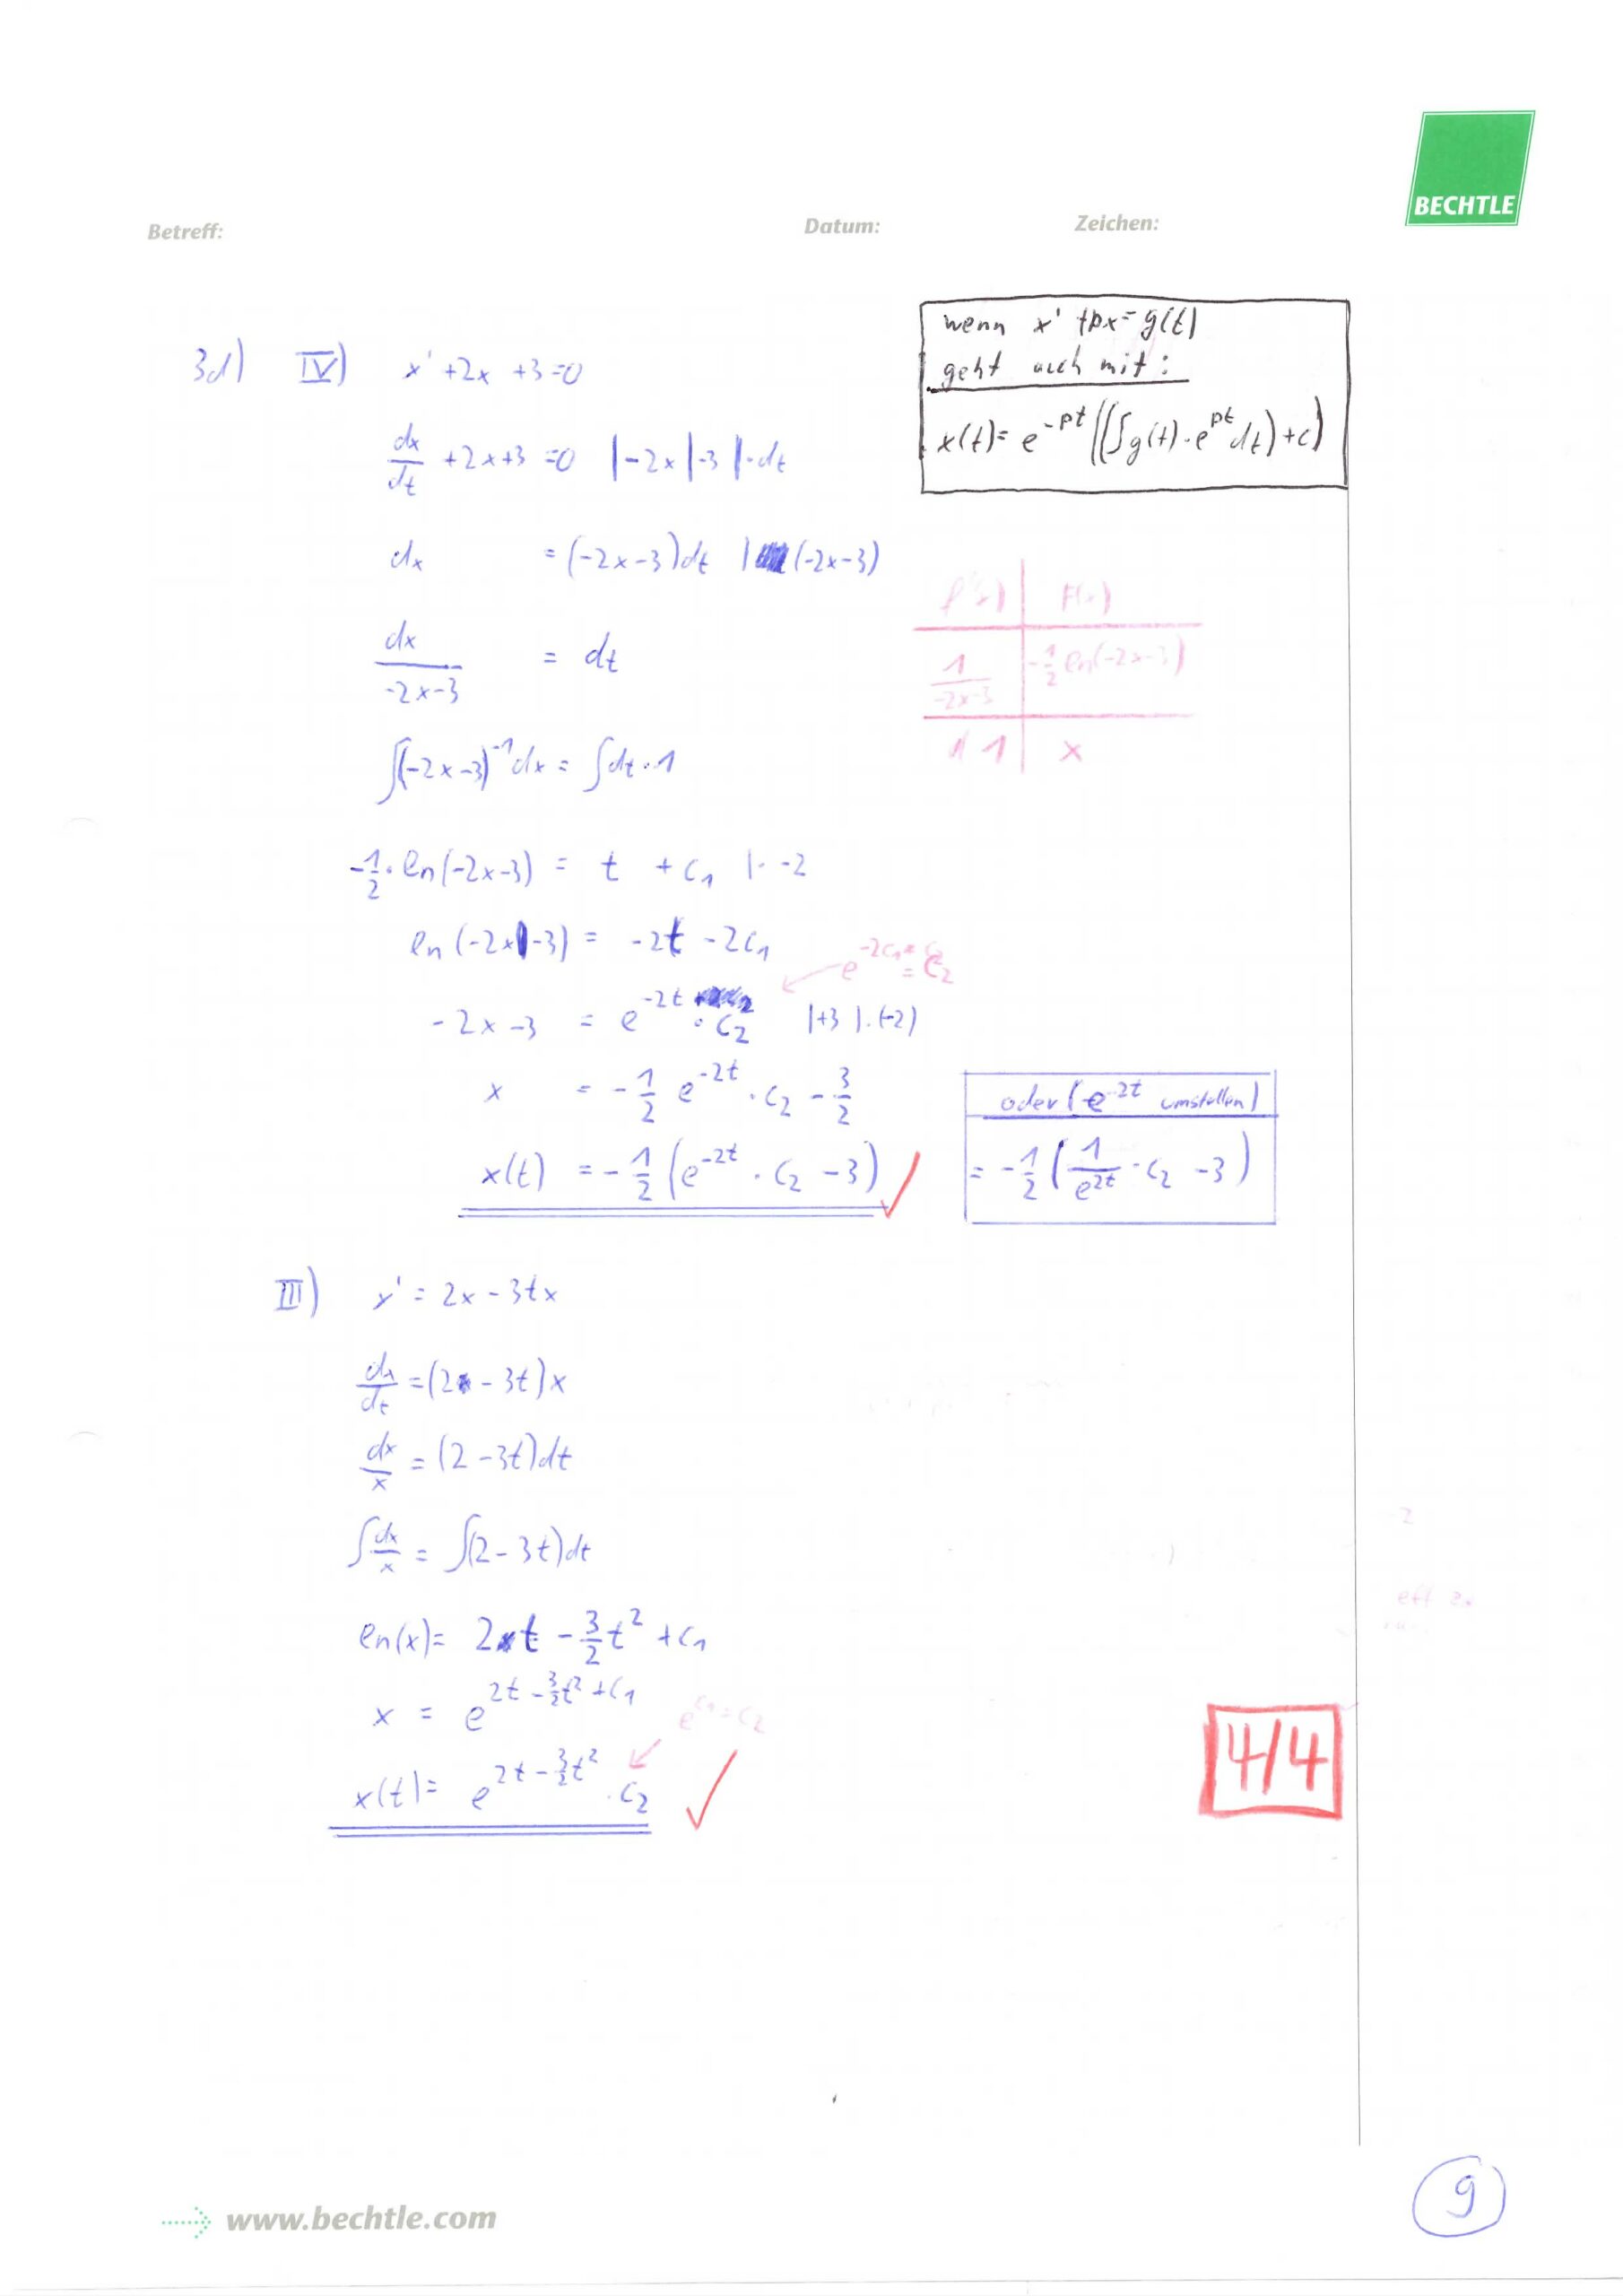 BECHTLE
Betreff: Datum: Zeichen:
wenn x' +px=g(t)
geht auch mit:
x(t)= e^-pt ((∫g(t)·e^pt dt)+c)
3d) IV) x' +2x +3=0
dx/dt +2x+3=0 |-2x|-3|·dt
dx = (-2x-3)dt | (-2x-3)
dx/(-2x-3) = dt
∫(-2x-3)^-1 dx = ∫dt·1
F(x)
1/(-2x-3) -1/2 ln(-2x-3)
1 x
-1/2 · ln(-2x-3) = t + c₁ |· -2
ln(-2x-3) = -2t -2c₁
= c₂
-2x-3 = e^-2t · c₂ |+3 |·(-2)
x = -1/2 e^-2t · c₂ - 3/2
x(t) = -1/2 (e^-2t · c₂ -3) ✓
oder (e^-2t umstellen)
= -1/2 (1/e^2t · c₂ -3)
III) x' = 2x - 3tx
dx/dt = (2 - 3t)x
dx/x = (2 - 3t)dt
∫dx/x = ∫(2 - 3t)dt
ln(x) = 2t - 3/2 t² + c₁
x = e^(2t - 3/2 t² + c₁)
e^c₁ = c₂
x(t) = e^(2t - 3/2 t²) · c₂ ✓
4/4
www.bechtle.com
9